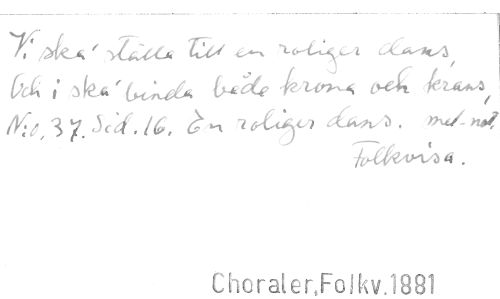 Vi ska' ställa till en roliger dans,
Och i ska' binda både krona och krans,
N:o. 37. Sid. 16. En roliger dans. mel-not.
Folkvisa.
Choraler,Folkv.1881